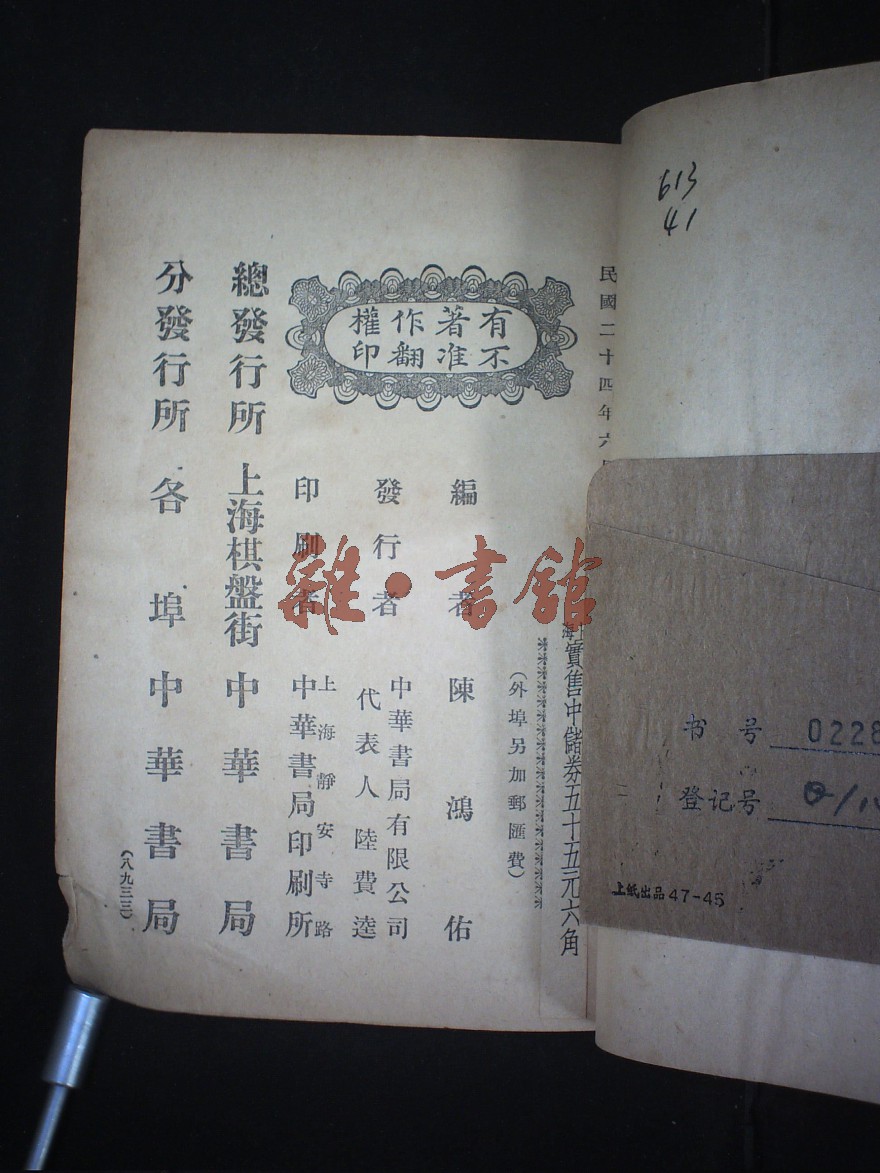 民國二十四年六
實售中儲券五十五元六角
(外埠另加郵匯費)
有著作權
不准翻印
編者 陳鴻佑
發行者 中華書局有限公司
代表人 陸費逵
印刷者 上海靜安寺路
中華書局印刷所
總發行所 上海棋盤街 中華書局
分發行所 各埠中華書局
(八九三三)
雜·書館
613
41
书号 0228
登记号
上紙出品 47-45